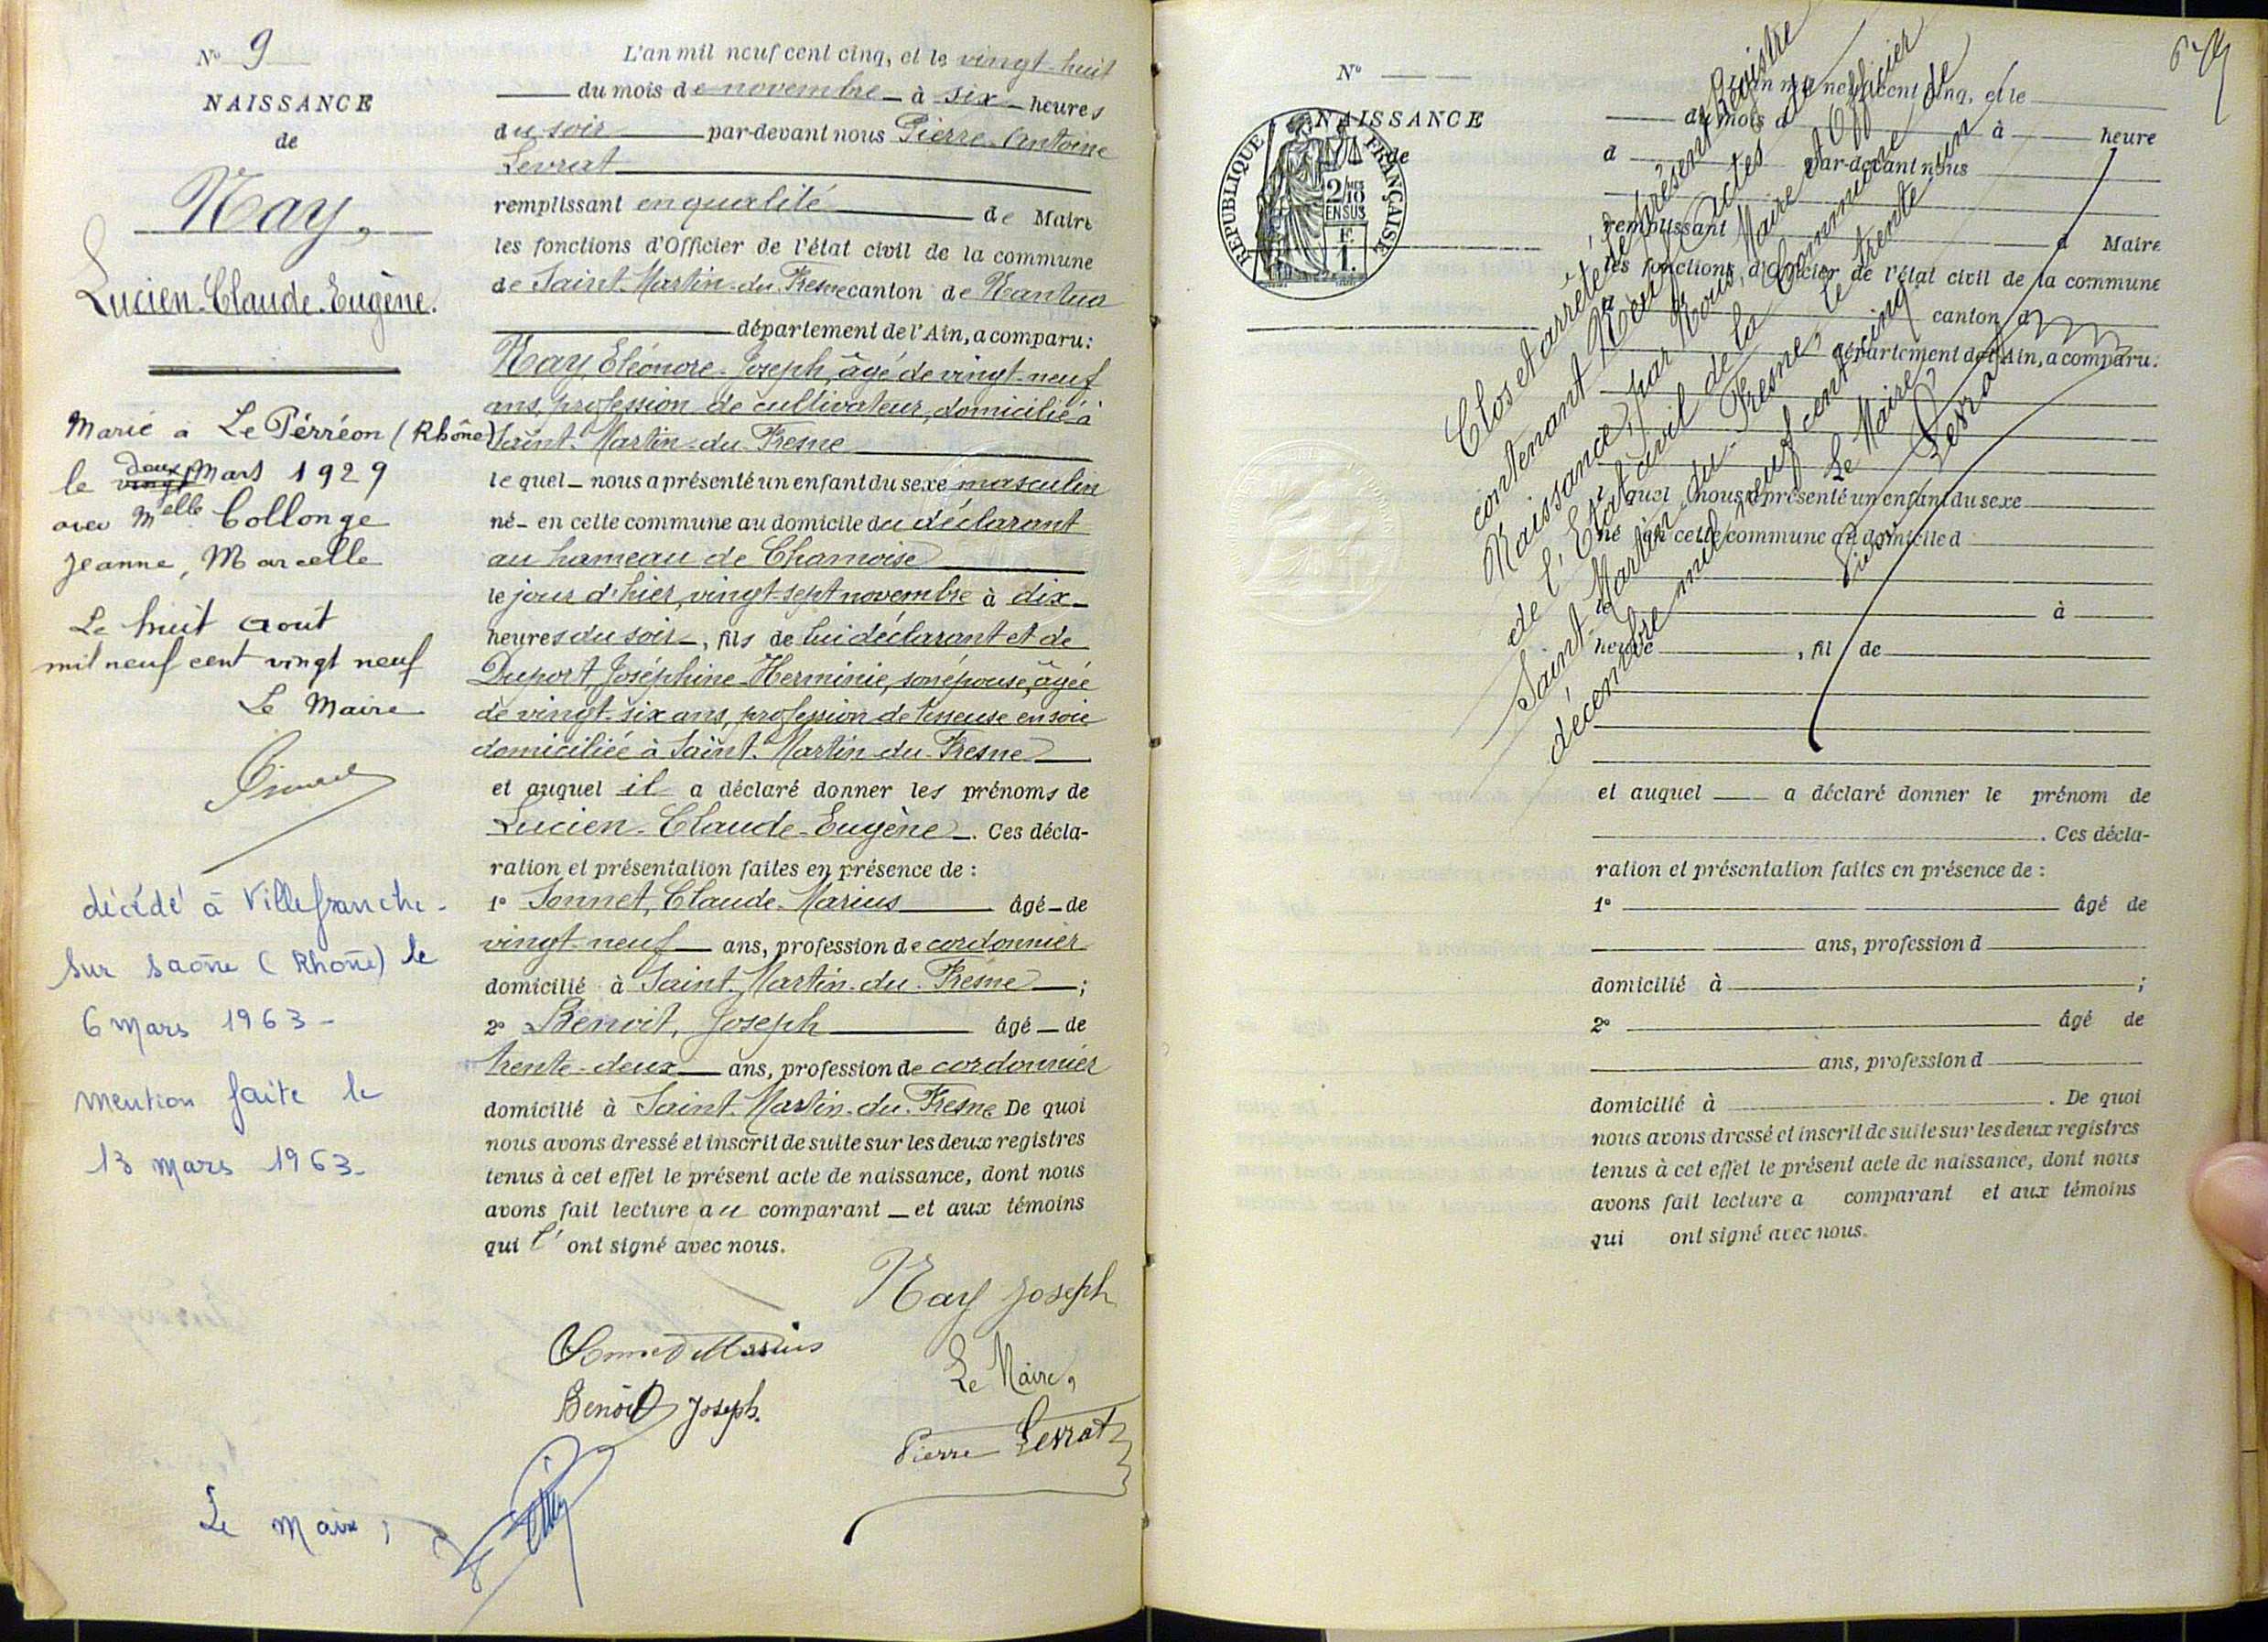 N° 9
NAISSANCE
de
Nay,
Lucien-Claude-Eugène.
Marié à Le Pérréon (Rhône)
le vingt deux Mars 1929
avec Melle Collonge
Jeanne, Marcelle
Le huit Aout
mil neuf cent vingt neuf
Le Maire
décédé à Villefranche-
sur saône (Rhône) le
6 mars 1963-
mention faite le
13 mars 1963-
Le Maire,
L'an mil neuf cent cinq, et le vingt-huit
du mois de novembre à six heures
du soir par-devant nous Pierre-Antoine
Levrat
remplissant en qualité de Maire
les fonctions d'Officier de l'état civil de la commune
de Saint-Martin-du-Fresne canton de Nantua
département de l'Ain, a comparu:
Nay, Eléonore-Joseph, âgé de vingt-neuf
ans, profession de cultivateur, domicilié à
Saint-Martin-du-Fresne
lequel nous a présenté un enfant du sexe masculin
né en cette commune au domicile du déclarant
au hameau de Chamoise
le jour d'hier, vingt-sept novembre à dix
heures du soir, fils de lui déclarant et de
Duport, Joséphine-Herminie, son épouse, âgée
de vingt-six ans, profession de tisseuse en soie
domiciliée à Saint-Martin-du-Fresne
et auquel il a déclaré donner les prénoms de
Lucien-Claude-Eugène. Ces décla-
ration et présentation faites en présence de :
1° Sonnet, Claude-Marius âgé de
vingt-neuf ans, profession de cordonnier
domicilié à Saint-Martin-du-Fresne ;
2° Benoit, Joseph âgé de
trente-deux ans, profession de cordonnier
domicilié à Saint-Martin-du-Fresne De quoi
nous avons dressé et inscrit de suite sur les deux registres
tenus à cet effet le présent acte de naissance, dont nous
avons fait lecture au comparant et aux témoins
qui l' ont signé avec nous.
Nay Joseph
Sonnet Marius
Le Maire,
Benoit Joseph.
Pierre Levrat
N°
NAISSANCE
de
REPUBLIQUE FRANÇAISE
2/10mes
EN SUS
F.
1.
L'an mil neuf cent cinq, et le
du mois d à heure
d par-devant nous
remplissant d Maire
les fonctions d'Officier de l'état civil de la commune
canton d
département de l'Ain, a comparu:
Clos et arrêté le présent Registre
contenant Neuf Actes de
Naissance, par Nous, Maire et Officier
de l'Etat civil de la Commune de
Saint-Martin-du-Fresne, le trente un
décembre mil neuf cent cinq
Le Maire,
Pierre Levrat
l quel nous a présenté un enfant du sexe
né en cette commune au domicile d
le à
heure , fil de
et auquel a déclaré donner le prénom de
. Ces décla-
ration et présentation faites en présence de :
1° âgé de
ans, profession d
domicilié à ;
2° âgé de
ans, profession d
domicilié à . De quoi
nous avons dressé et inscrit de suite sur les deux registres
tenus à cet effet le présent acte de naissance, dont nous
avons fait lecture a comparant et aux témoins
qui ont signé avec nous.